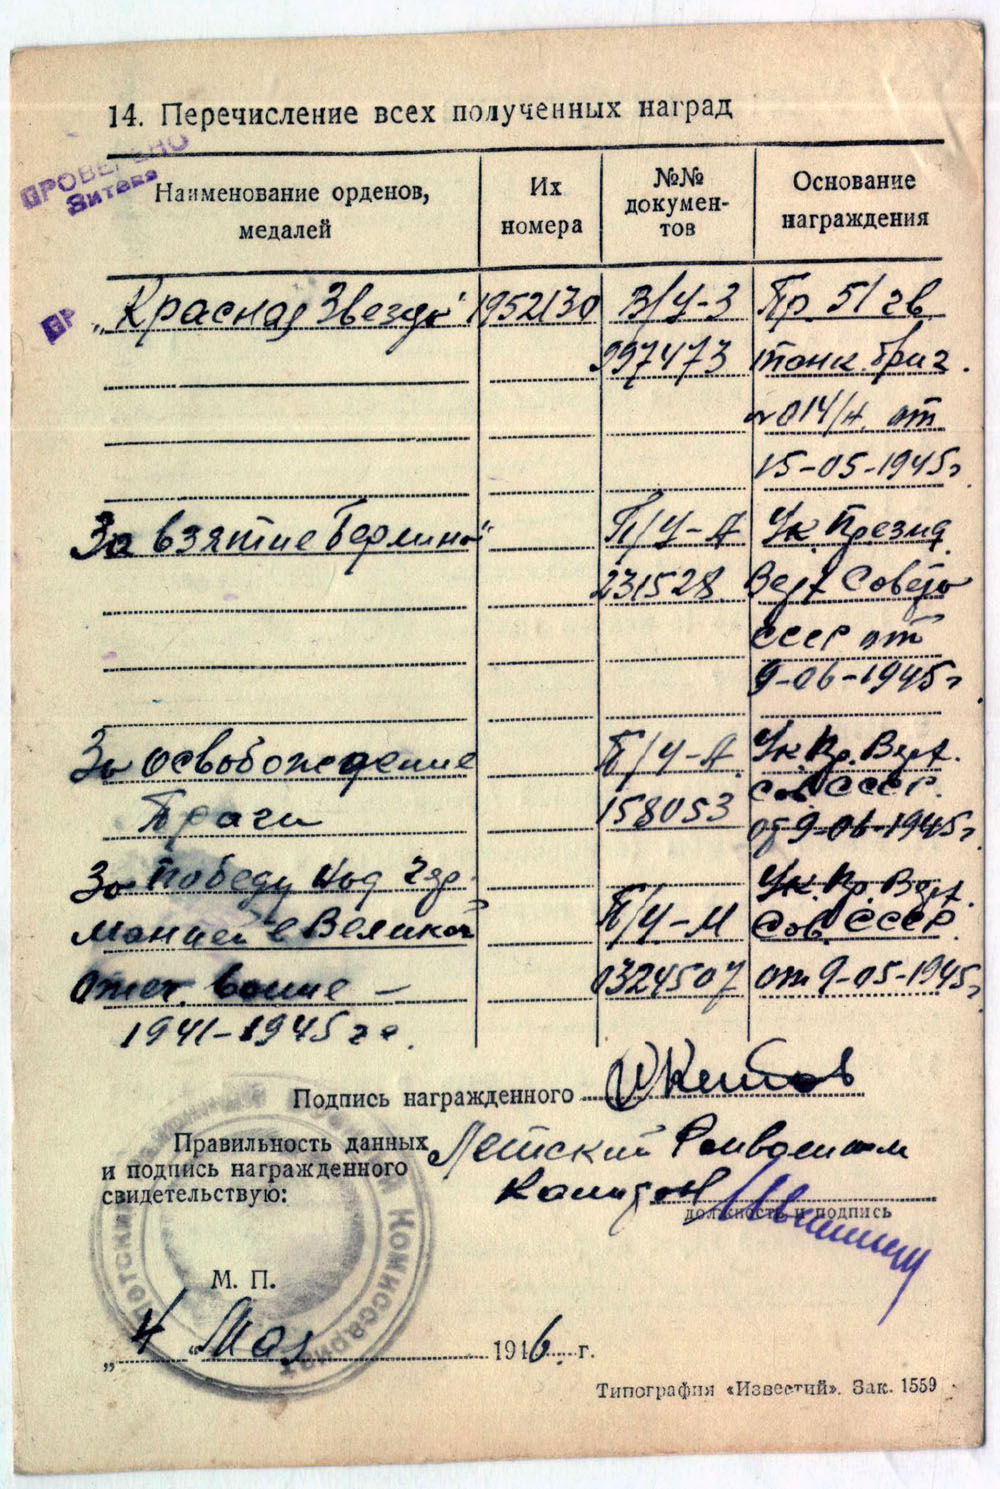 14. Перечисление всех полученных наград
ПРОВЕРЕНО
Наименование орденов, медалей
Их номера
№№ документов
Основание награждения
„Красная Звезда" 1952130 В/У-З Пр. 51 гв.
997473 танк. бриг.
№ 014/н. от
15-05-1945г
За взятие Берлина" П/У-А Ук. Презид.
231528 Верх Совета
СССР от
9-06-1945 г
За освобождение П/У-А Ук. Пр. Верх.
Праги 158053 Сов. СССР.
от 9-06-1945 г.
За победу над Гер- Ук. Пр. Верх.
манией в Великой П/У-М Сов. СССР.
Отеч. войне – 0324507 от 9-05-1945г
1941-1945 гг.
Подпись награжденного
Правильность данных
и подпись награжденного
свидетельствую:
должность и подпись
М. П.
„4" Мая 1946. г.
Комиссариат
Типография «Известий». Зак. 1559